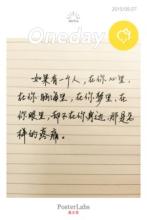 2015/05/07
Oneday
如果有一个人，在你心里，
在你脑海里，在你梦里，在
你眼里，却不在你身边，那是怎
样的疼痛。
PosterLabs